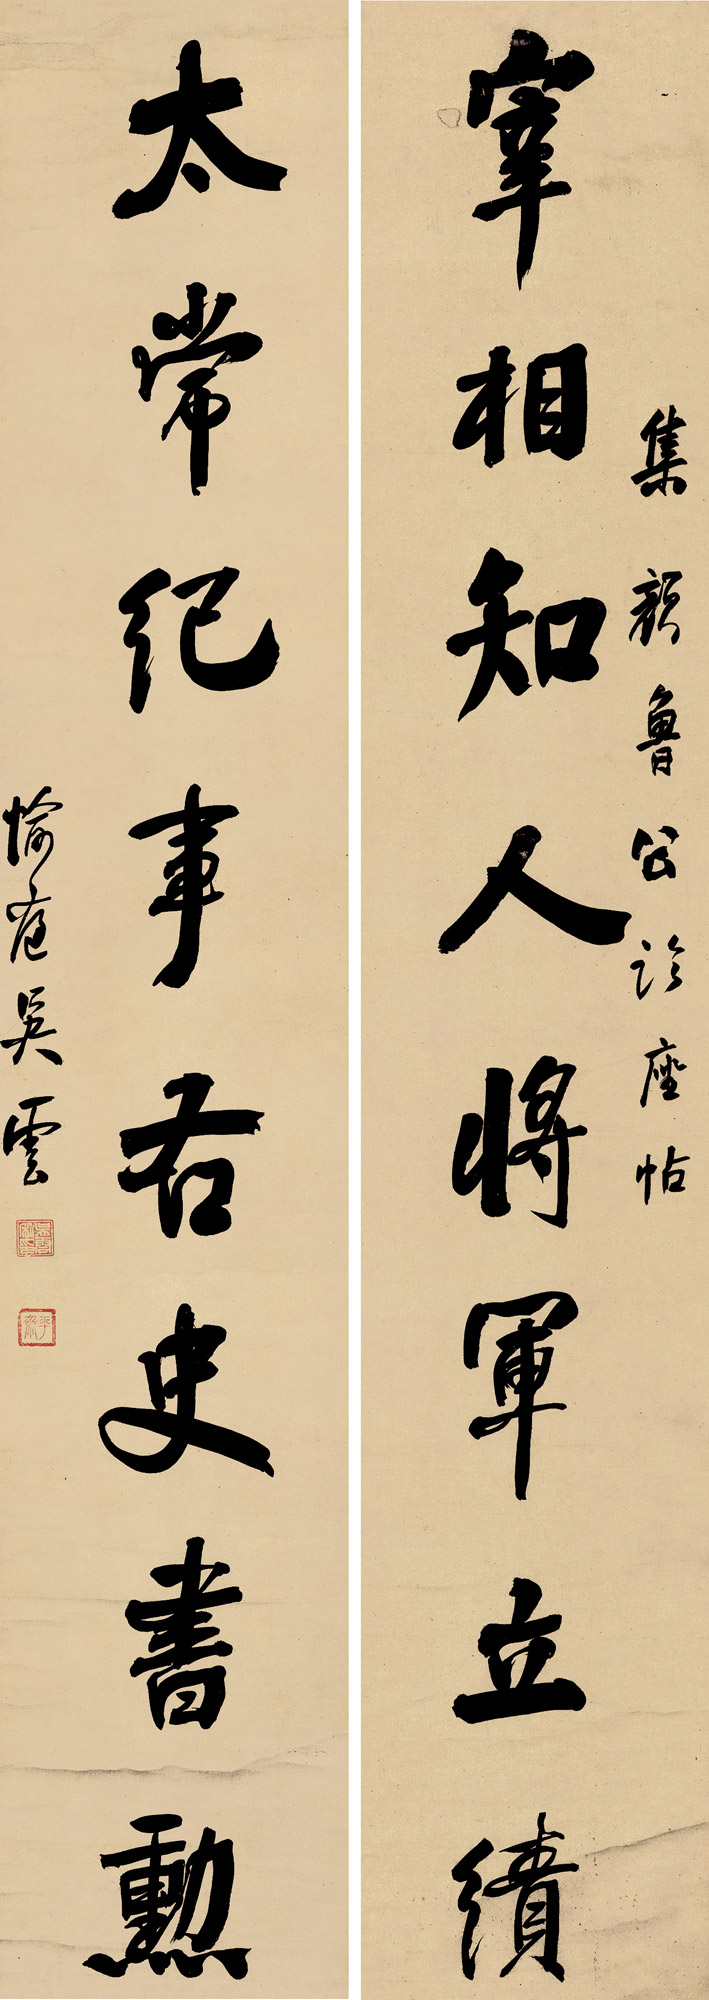 集顏魯公論座帖
宰相知人將軍立績
太常紀事右史書勳
愉庭吳雲